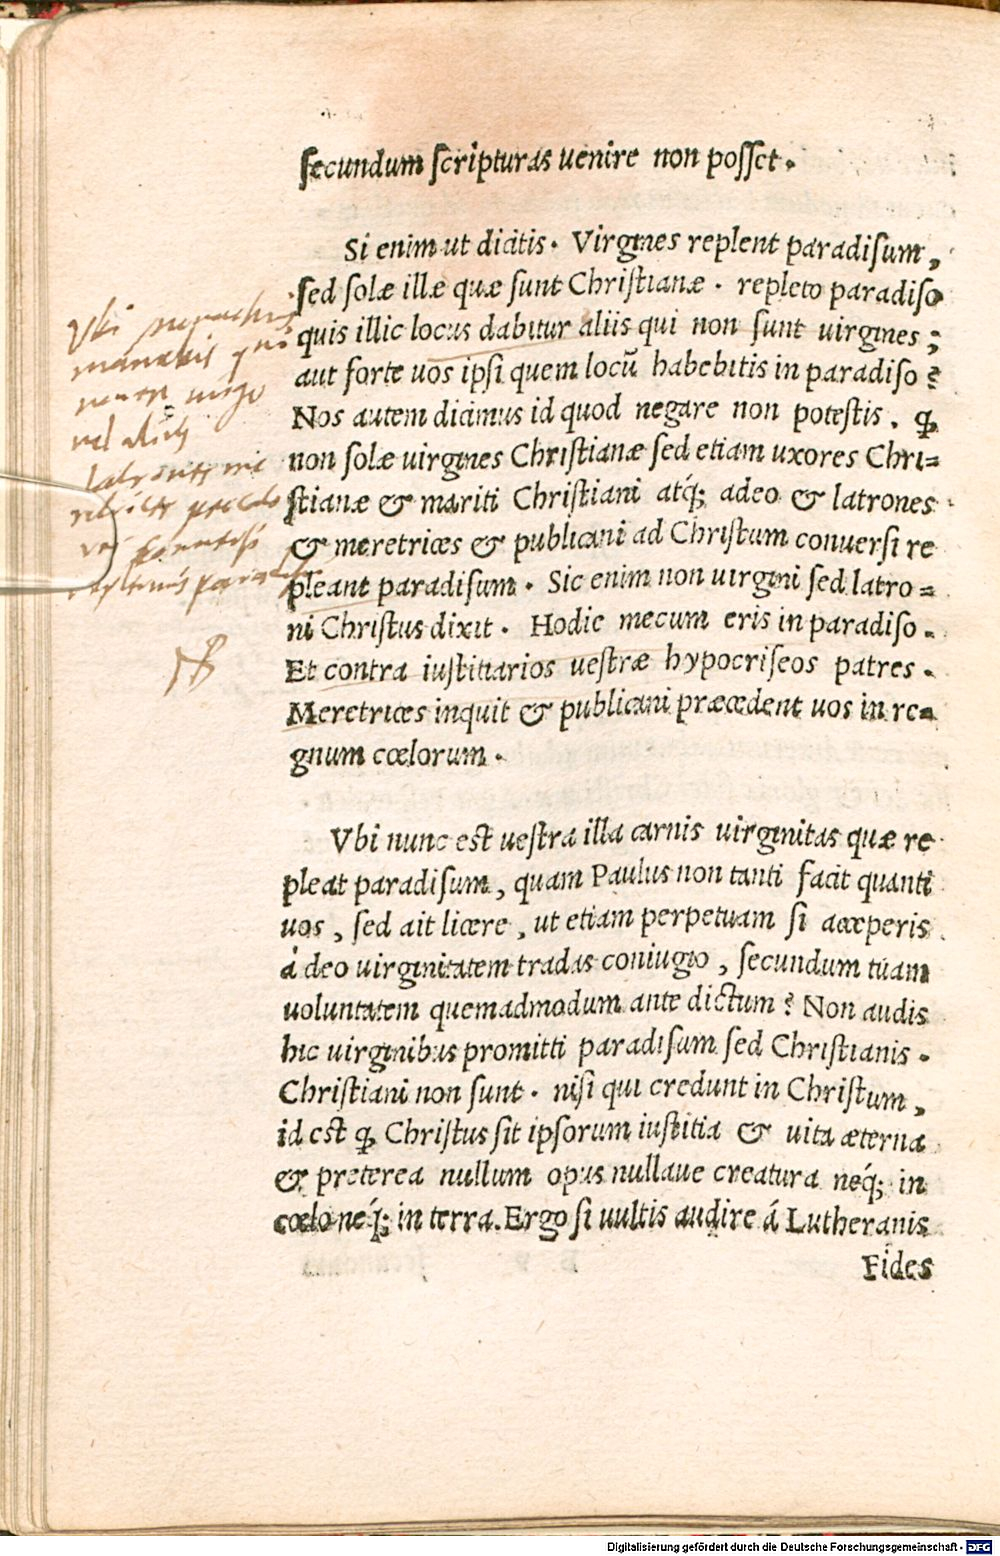 secundum scripturas uenire non posset.
Si enim ut dicitis. Virgines replent paradisum,
sed solæ illæ quæ sunt Christianæ. repleto paradiso
quis illic locus dabitur aliis qui non sunt uirgines;
aut forte uos ipsi quem locũ habebitis in paradiso?
Nos autem dicimus id quod negare non potestis. ꝙ
non solæ uirgines Christianæ sed etiam uxores Chri=
stianæ & mariti Christiani atq́; adeo & latrones
& meretrices & publicani ad Christum conuersi re
pleant paradisum. Sic enim non uirgini sed latro=
ni Christus dixit. Hodie mecum eris in paradiso.
Et contra iustitiarios uestræ hypocriseos patres.
Meretrices inquit & publicani præcedent uos in re=
gnum cœlorum.
Vbi nunc est uestra illa carnis uirginitas quæ re
pleat paradisum, quam Paulus non tanti facit quanti
uos, sed ait licere, ut etiam perpetuam si acceperis
á deo uirginitatem tradas coniugio, secundum tuam
uoluntatem quemadmodum ante dictum? Non audis
hic uirginibus promitti paradisum sed Christianis.
Christiani non sunt. nisi qui credunt in Christum,
id est ꝙ Christus sit ipsorum iustitia & uita æterna
& preterea nullum opus nullaue creatura neq́; in
cœlo neq́; in terra. Ergo si uultis audire á Lutheranis
Fides
Vbi
NB
Digitalisierung gefördert durch die Deutsche Forschungsgemeinschaft - DFG